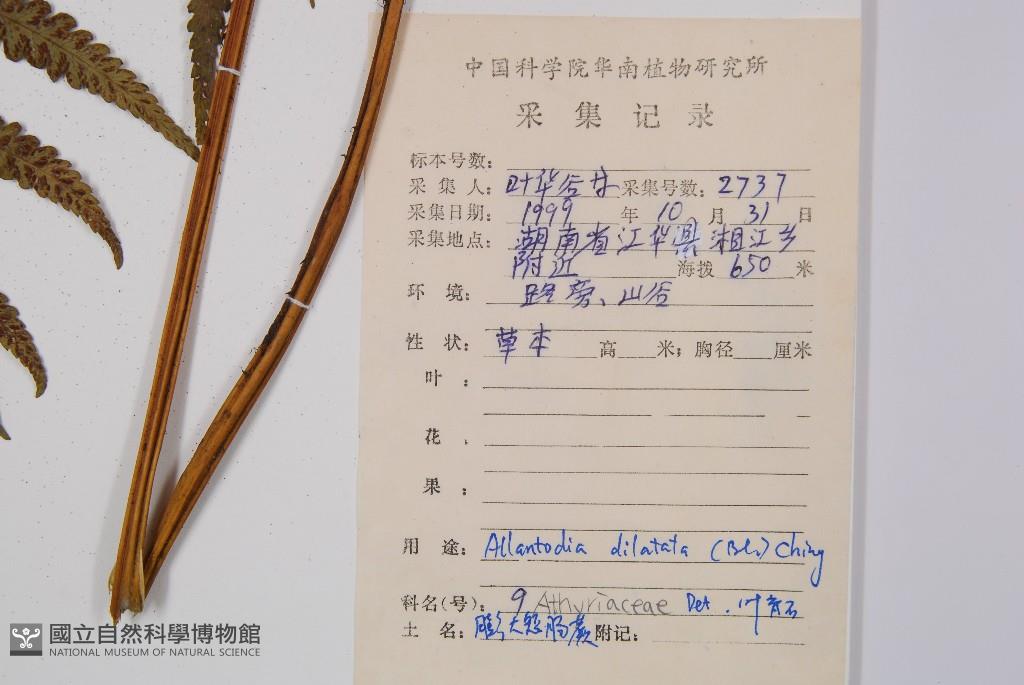 中国科学院华南植物研究所
采集记录
标本号数:
采集人: 叶华谷 采集号数: 2737
采集日期: 1999 年 10 月 31 日
采集地点: 湖南省江华县湘江乡
附近 海拨 650 米
环境: 路旁、山谷
性状: 草本 高 米; 胸径 厘米
叶:
花:
果:
用途: Allantodia dilatata (Bl.) Ching
科名(号): 9 Athyriaceae Det. 叶
土名: 大 肠蕨 附记:
國立自然科學博物館
NATIONAL MUSEUM OF NATURAL SCIENCE